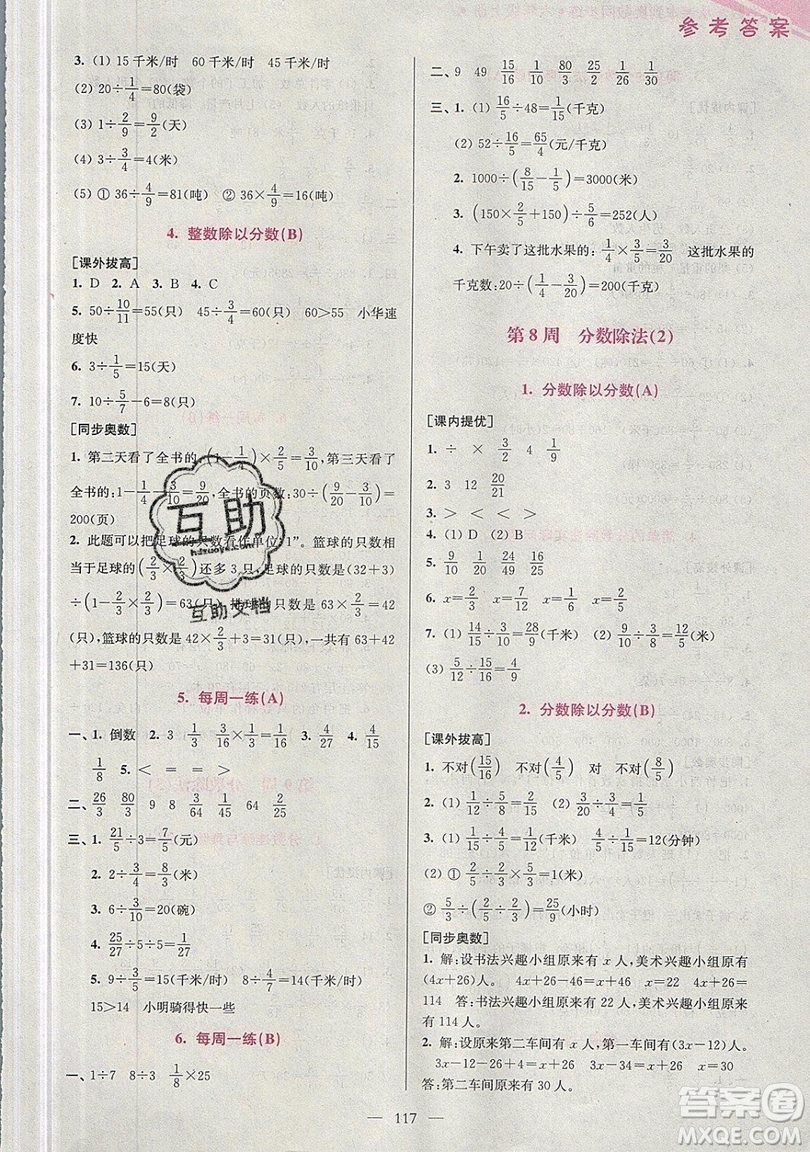 参考答案
3. (1) 15千米/时 60千米/时 45千米/时
(2) 20÷1/4=80(袋)
(3) 1÷2/9=9/2(天)
(4) 3÷3/4=4(米)
(5) ① 36÷4/9=81(吨) ② 36×4/9=16(吨)
4. 整数除以分数(B)
[课外拔高]
1. D 2. A 3. B 4. C
5. 50÷10/11=55(只) 45÷3/4=60(只) 60>55 小华速
度快
6. 3÷1/5=15(天)
7. 10÷5/7-6=8(只)
[同步奥数]
1. 第二天看了全书的:(1-1/4)×2/5=3/10,第三天看了
全书的:1-1/4-3/10=9/20,全书的页数:30÷(9/20-3/10)=
200(页)
2. 此题可以把足球的只数看作单位“1”。篮球的只数相
当于足球的(2/3×2/3)还多3只,足球的只数是(32+3)
÷(1-2/3×2/3)=63(只),排球的只数是63×2/3=42
(只),篮球的只数是42×2/3+3=31(只),一共有63+42
+31=136(只)
5. 每周一练(A)
一、1. 倒数 2. 3 1/3 3/16 1/3 3. 4/21 4. 4/15
1/8 5. < = = >
二、26/3 80/3 9 8 64 1/64 32/45
三、1. 21/5÷3=7/5(元)
2. 8/5÷4=2/5(米)
3. 6÷3/10=20(碗)
4. 25/27÷5÷5=1/27(米)
5. 9÷3/5=15(千米/时) 8÷4/7=14(千米/时)
15>14 小明骑得快一些
6. 每周一练(B)
一、1÷7 8÷3 1/8×25
二、9 49 15/16 80 8/5 1/40 9/10
三、1. (1) 16/5÷48=1/15(千克)
(2) 52÷16/5=65/4(元/千克)
2. 1000÷(5/6×2/5)=3000(米)
3. (150×2/5+150)÷5/6=252(人)
4. 下午卖了这批水果的:1/4×3/5=3/20 这批水果的
千克数:20÷(1/4-3/20)=200(千克)
第8周 分数除法(2)
1. 分数除以分数(A)
[课内提优]
1. ÷ × 3/2 4 4/15
2. 1.2 9/25 27/7
3. > < < >
4. (1) D (2) D
5. 9/10 1/9 15/16 24/25 49/16
6. x=2/7 x=4/5 x=1/4 x=2/9
7. (1) 14/15÷7/10=4/3(千米) (2) 9/10÷3/4=6/5(米)
(3) 5/12÷15/16=4/9
2. 分数除以分数(B)
[课外拔高]
1. 不对(15/16) 不对(4/5) 对 不对(1/5)
2. (1) 1/6÷4/5 (2) 4/5÷1/6
3. (1) 4/5÷1/15=12(千米) 4/5÷1/15=12(分钟)
(2) ① 2/5÷(2/5÷1/2)=1/2(小时)
② 2/5÷(2/5÷5/9)=5/9(小时)
[同步奥数]
1. 解:设书法兴趣小组原来有x人,美术兴趣小组原有
(4x+26)人。 4x+26=6x-18 x=22 4x+26=
114 答:书法兴趣小组原来有22人,美术兴趣小组原有
114人。
2. 解:设原来第二车间有x人,第一车间原有3x人。
3x-12-26=x-12+26+8 x=30
答:第二车间原来有30人。
— 117 —
互助
hdzuoye.com
互助文档
答案圈
MXQE.COM